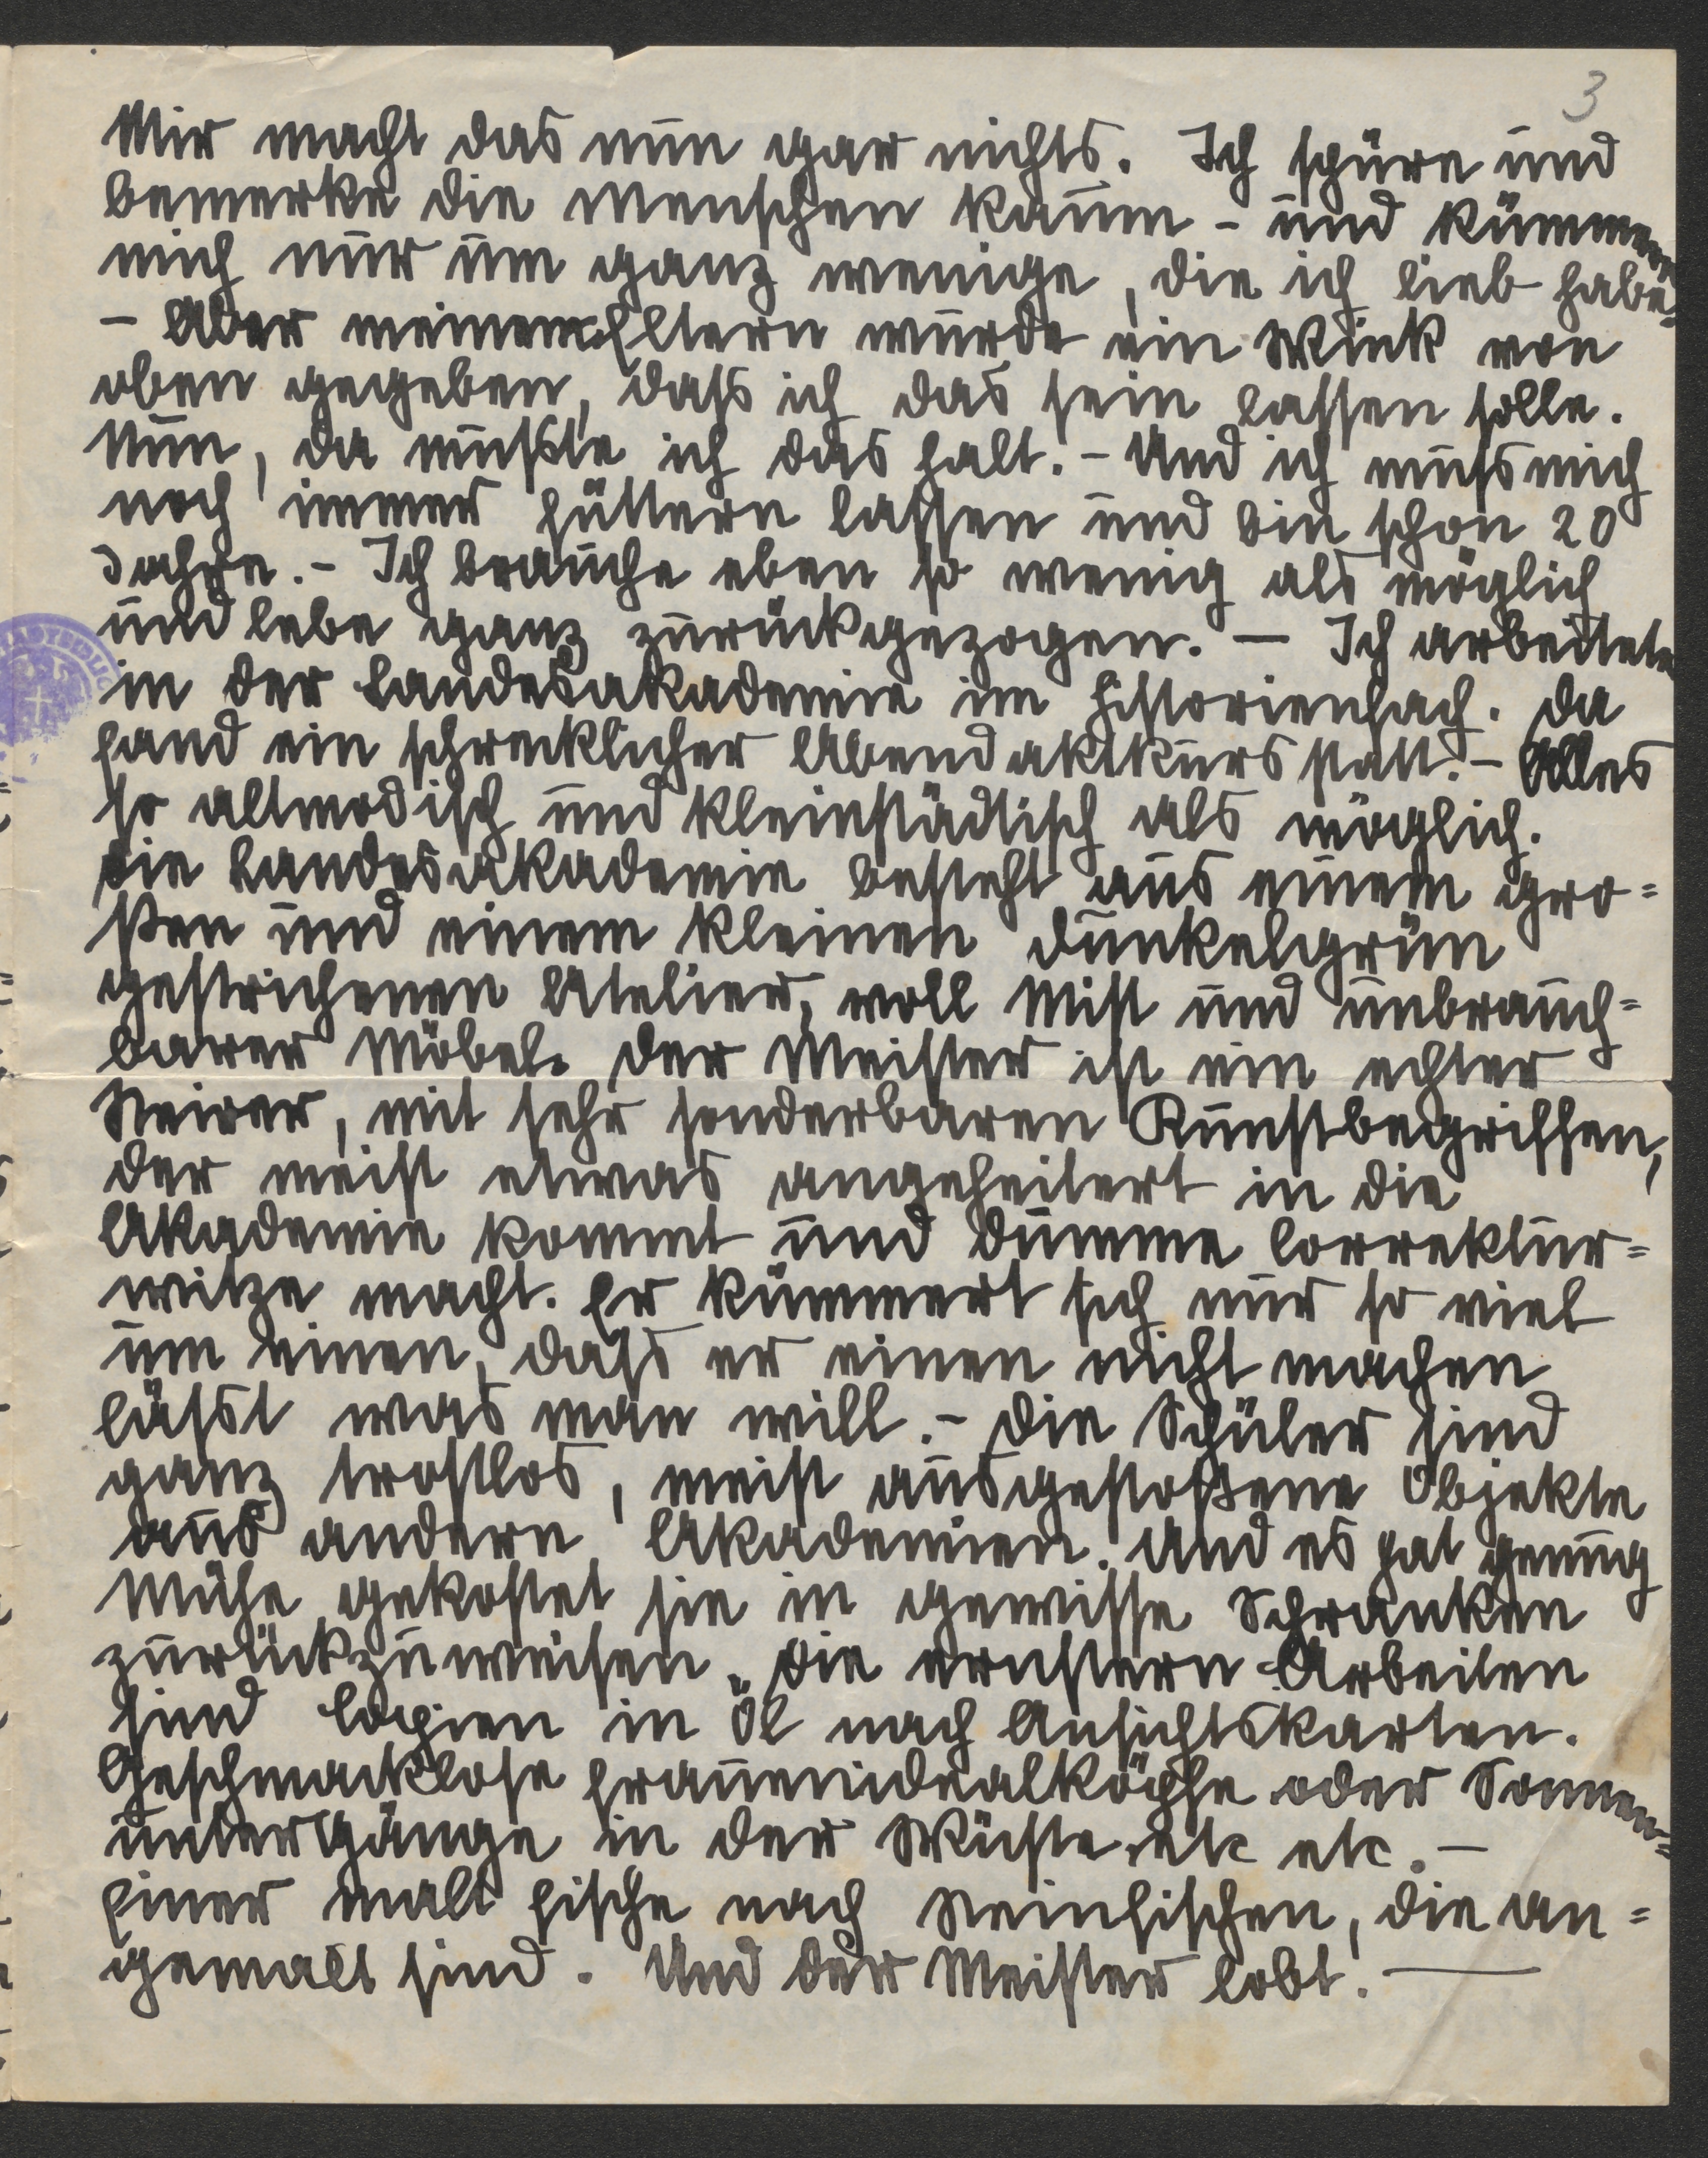 3
Mir macht das nun gar nichts. Ich spüre und
bemerke die Menschen kaum - und kümmere
mich nur um ganz wenige, die ich lieb habe.
- Aber meinen Eltern wurde ein Wink von
oben gegeben, dass ich das sein lassen solle.
Nun, da mußte ich das halt. - Und ich muss mich
noch immer füttern lassen und bin schon 20
Jahre. - Ich brauche eben so wenig als möglich
und lebe ganz zurückgezogen. - Ich arbeitete
in der Landesakademie im Historienfach. Da
fand ein schrecklicher Abendaktkurs statt. - Alles
so altmodisch und kleinstädtisch als möglich.
Die Landesakademie besteht aus einem gro=
ßen und einem kleinen dunkelgrün
gestrichenen Atelier, voll Mist und unbrauch=
barer Möbel. Der Meister ist ein echter
Steirer, mit sehr sonderbaren Kunstbegriffen,
der meist etwas angeheitert in die
Akademie kommt und dumme Correktur=
witze macht. Er kümmert sich nur so viel
um einen, dass er einen nicht machen
lässt was man will. - Die Schüler sind
ganz trostlos, meist ausgestoßene Objekte
aus andern Akademien. Und es hat genug
Mühe gekostet sie in gewisse Schranken
zurückzuweisen. Die ernstern Arbeiten
sind Copien in Öl nach Ansichtskarten.
Geschmacklose Frauenidealköpfe oder Sonnen=
untergänge in der Wüste etc etc. -
Einer malt Fische nach Steinfischen, die an=
gemalt sind. Und der Meister lobt. -